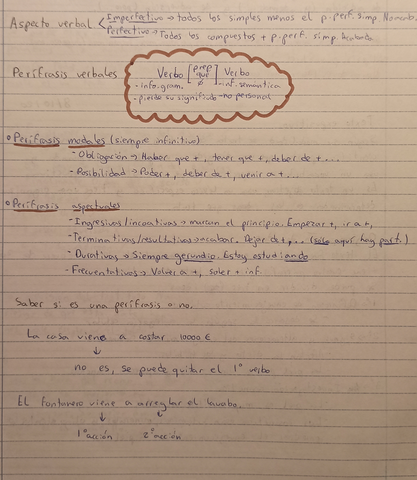 Aspecto verbal Imperfectivo → todos los simples menos el p. perf. simp
Perfectivo → Todos los compuestos + p. perf. simp Acabada
Perífrasis verbales Verbo [prep que Ø] Verbo
- info. gram. - inf. semántica
- pierde su significado - no personal
Perífrasis modales (siempre infinitivo)
- Obligación → Haber que +, tener que +, deber de + ...
- Posibilidad → Poder +, deber de +, venir a + ...
Perífrasis aspectuales
- Ingresivas/incoativas → marcan el principio. Empezar +, ir a +,
- Terminativas/resultativas → acabar. Dejar de +, ... (solo aquí hay part.)
- Durativas → Siempre gerundio. Estoy estudiando.
- Frecuentativas → Volver a +, soler + inf.
Saber si es una perífrasis o no.
La casa viene a costar 10000 €
↓
no es, se puede quitar el 1º verbo
El fontanero viene a arreglar el lavabo.
↓ ↓
1ª acción 2ª acción